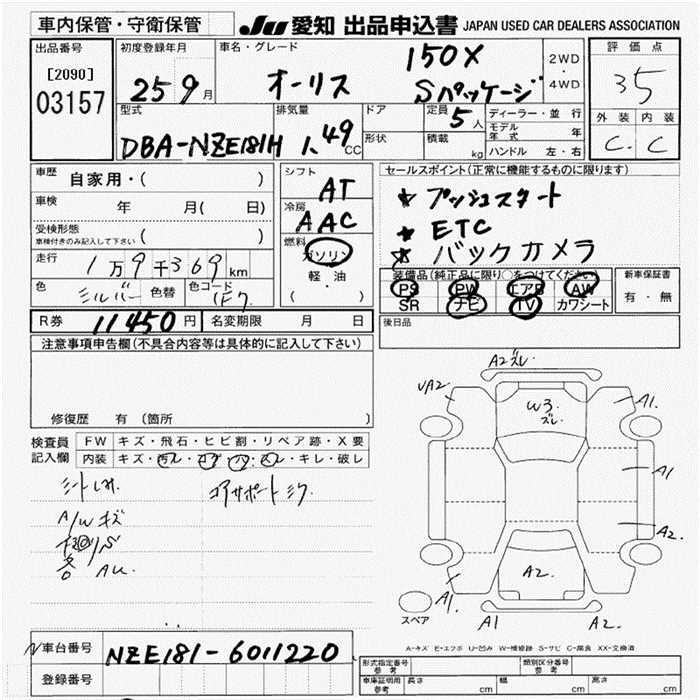 車内保管・守衛保管
JU 愛知 出品申込書 JAPAN USED CAR DEALERS ASSOCIATION
出品番号
[2090]
03157
初度登録年月
25 9月
車名・グレード
オーリス
150X
Sパッケージ
2WD
・
4WD
評価点
35
外装 内装
C. C
型式
DBA-NZE181H
排気量
1.49CC
ドア
形状
定員 5人
積載 kg
ディーラー・並行
モデル年式 年
ハンドル 左・右
車歴 自家用・( )
車検 年 月( 日)
受検形態
車検付きのみ記入して下さい ( )
走行 1万9千369km
色 シルバー 色替 色コード 1F7
シフト AT
冷房 AAC
燃料 ガソリン
軽・油
( )
セールスポイント(正常に機能するものに限ります)
★ プッシュスタート
★ ETC
★ バックカメラ
装備品(純正品に限り○をつけてください)
PS PW エアB AW
SR ナビ TV カワシート
新車保証書
有・無
R券 11450円 名変期限 月 日
後日品
注意事項申告欄(不具合内容等は具体的に記入して下さい)
修復歴 有(箇所 )
検査員記入欄
FW キズ・飛石・ヒビ割・リペア跡・X要
内装 キズ・汚レ・コゲ・穴・スレ・キレ・破レ
シートしみ
コアサポートミク
A/Wキズ
各 AU.
A2ズレ
UA2.
W3.
ズレ.
A1.
A1
A2.
A2.
A1.
A1
A2
スペア
A-キズ E-エクボ U-凹み W-補修跡 S-サビ C-腐食 XX-交換済
車台番号 NZE181-6011220
登録番号
形式指定番号
参考
類別区分番号
参考
車庫証明用
参考
長さ cm 幅 cm 高さ cm